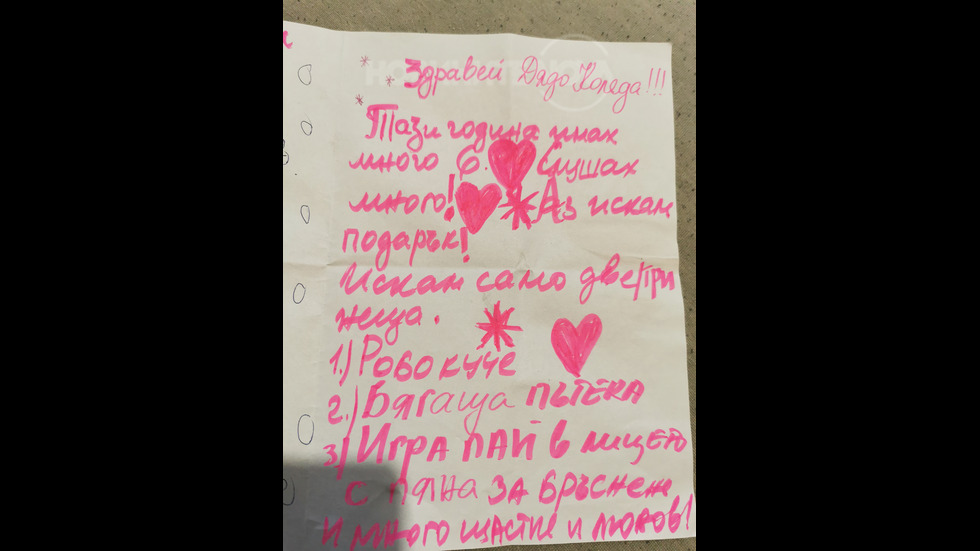 Здравей Дядо Коледа!!!
Тази година имах
много 6. Слушах
много! Аз искам
подарък!
Искам само две/три
неща.
1.) Робо куче
2.) Бягаща пътека
3) Игра пай в лицето
с пяна за бръснен
и много щастие и любов!